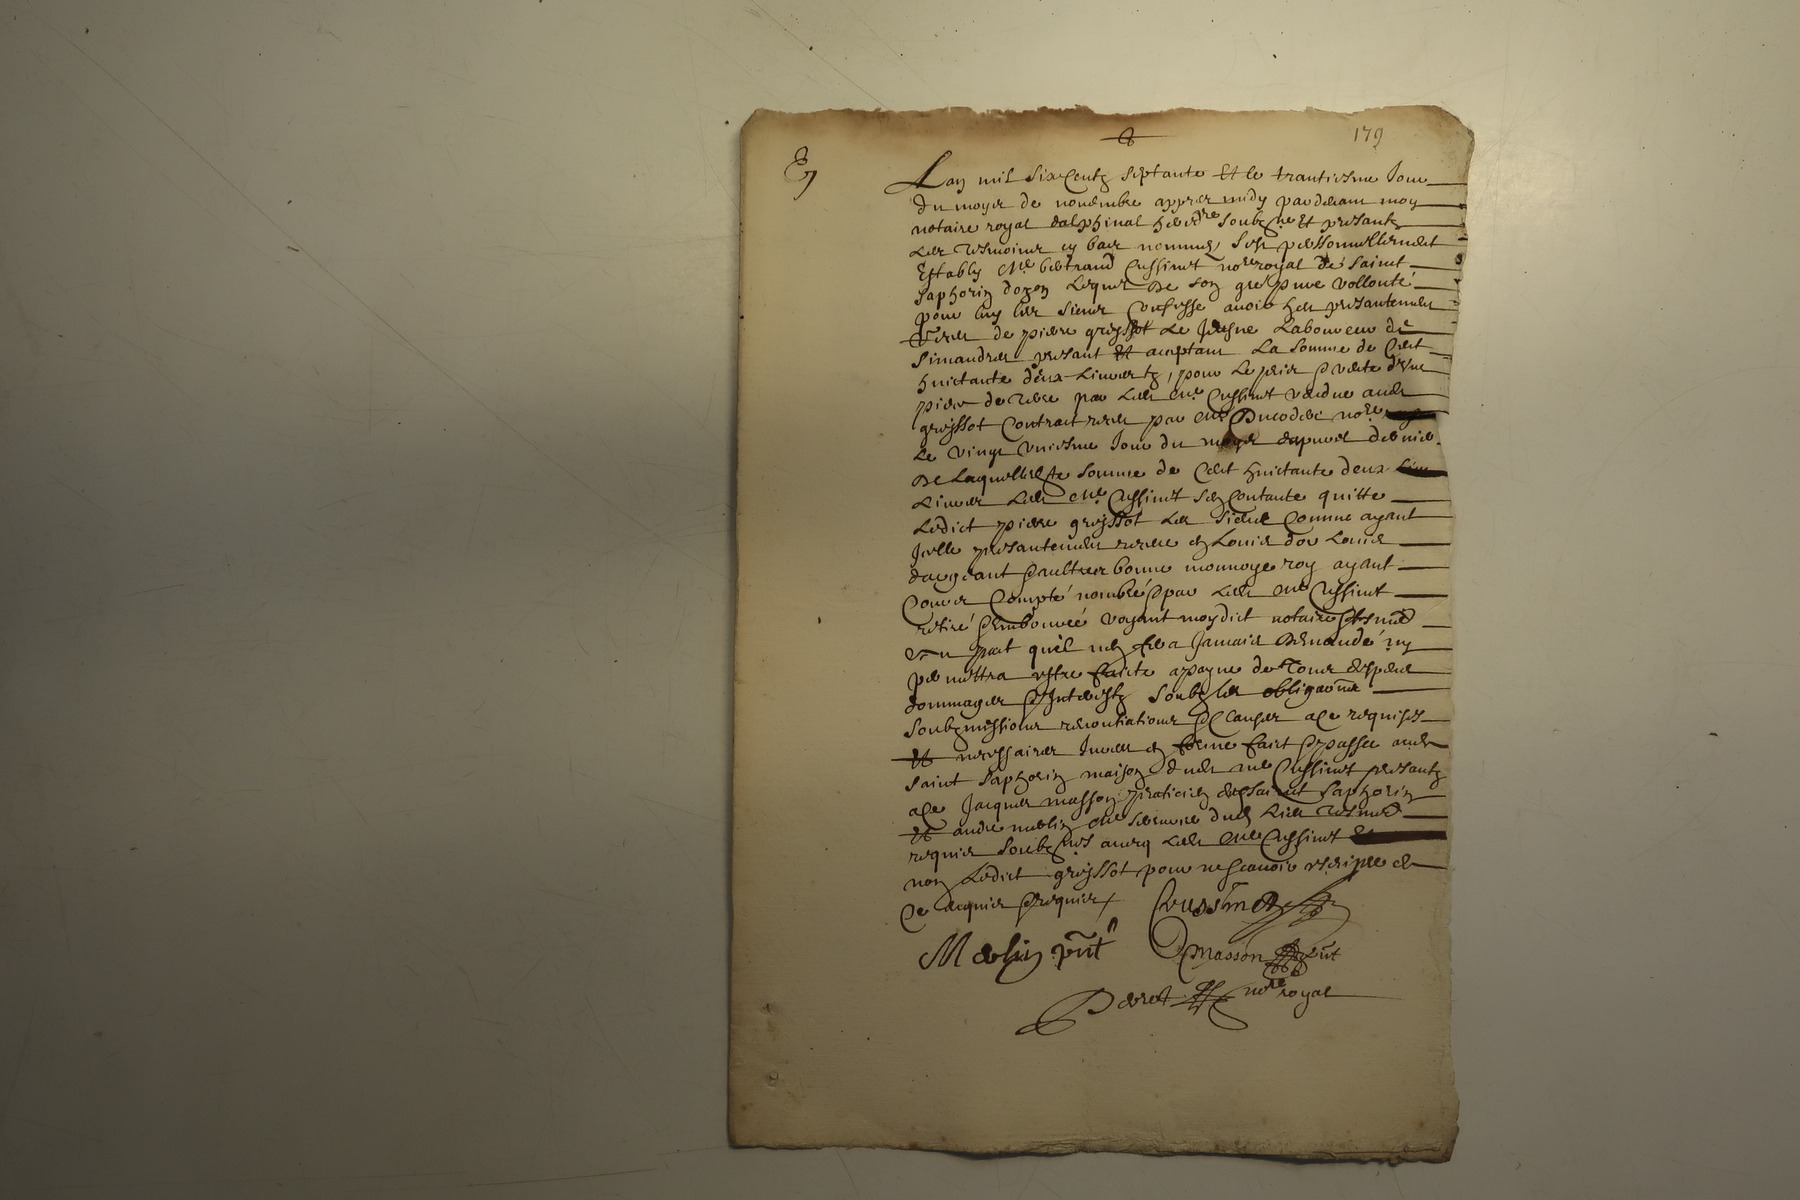 179
Lan mil six Centz septante Et le trantiesme Jour
du moys de novembre appres midy pardevant moy
notaire royal dalphinal hered.re soubz.ne Et presantz
Les tesmoins cy bas nommes, sest personnellement
Estably Me bertrand Cussinet no.re royal de saint
saphorin dozon Lequel de son gre & pure vollonté
pour luy les siens Confesse avoir heu presantement
de pierre greyssot Le Jeusne Laboureur de
simandres presant Et aceptant La somme de Cent
huictante deux Livres tz, pour Le prix & vente d'une
piece de terre par Led Me Cussinet vendue aud
greyssot Contract receu par Me no.re
Le vingt uniesme Jour du moys dernier
De Laquelle somme de Cent huictante deux
Livres Led Me Cussinet sen Contante quitte
Ledict pierre greyssot Les siens Comme ayant
Icelle presantement receue en Louis d'or Louis
d'argeant & aultres bonne monnoye roy ayant
Cours Compté nombré & par Led Me Cussinet
retiré & emboursé voyant moydict notaire & tesmoingz
quil nen fera Jamais demande ny
permettra estre faicte a payne de tous despens
dommages & Interestz soubz les obligaons
soubzmissions renontiations & Clauses a ce requises
Et necessaires Jurees en forme faict & passe aud
saint saphorin maison dud me Cussinet presantz
a ce Jacques masson praticien dud saint saphorin
Et andre merlin dud Lieu tesmoingz
requis soubz.nes avecq Led Me Cussinet
non Ledict greyssot pour ne scavoir escripre de
Ce enquis & requis
Cussinet
Merlin pnt
Masson pnt
no.re royal